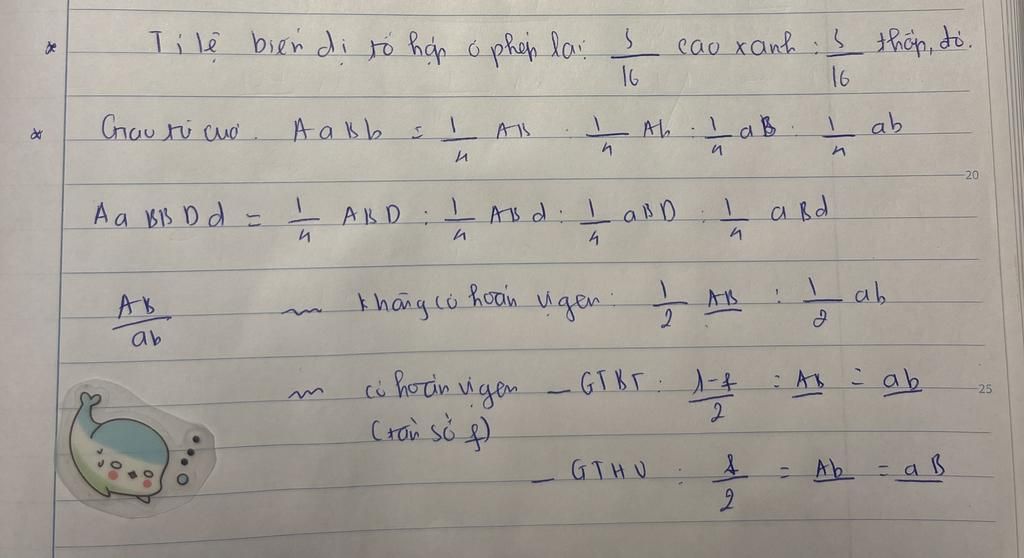 * Tỉ lệ biến dị tổ hợp ở phép lai: 3/16 cao xanh : 3/16 thấp, đỏ.
* Giao tử của. AaBb = 1/4 AB : 1/4 Ab : 1/4 aB : 1/4 ab
20
AaBBDd = 1/4 ABD : 1/4 ABd : 1/4 aBD : 1/4 aBd
AB/ab ~ Không có hoán vị gen: 1/2 AB : 1/2 ab
~ có hoán vị gen - GTBT: 1-f/2 = AB = ab
25
(tần số f)
- GTHV: f/2 = Ab = aB